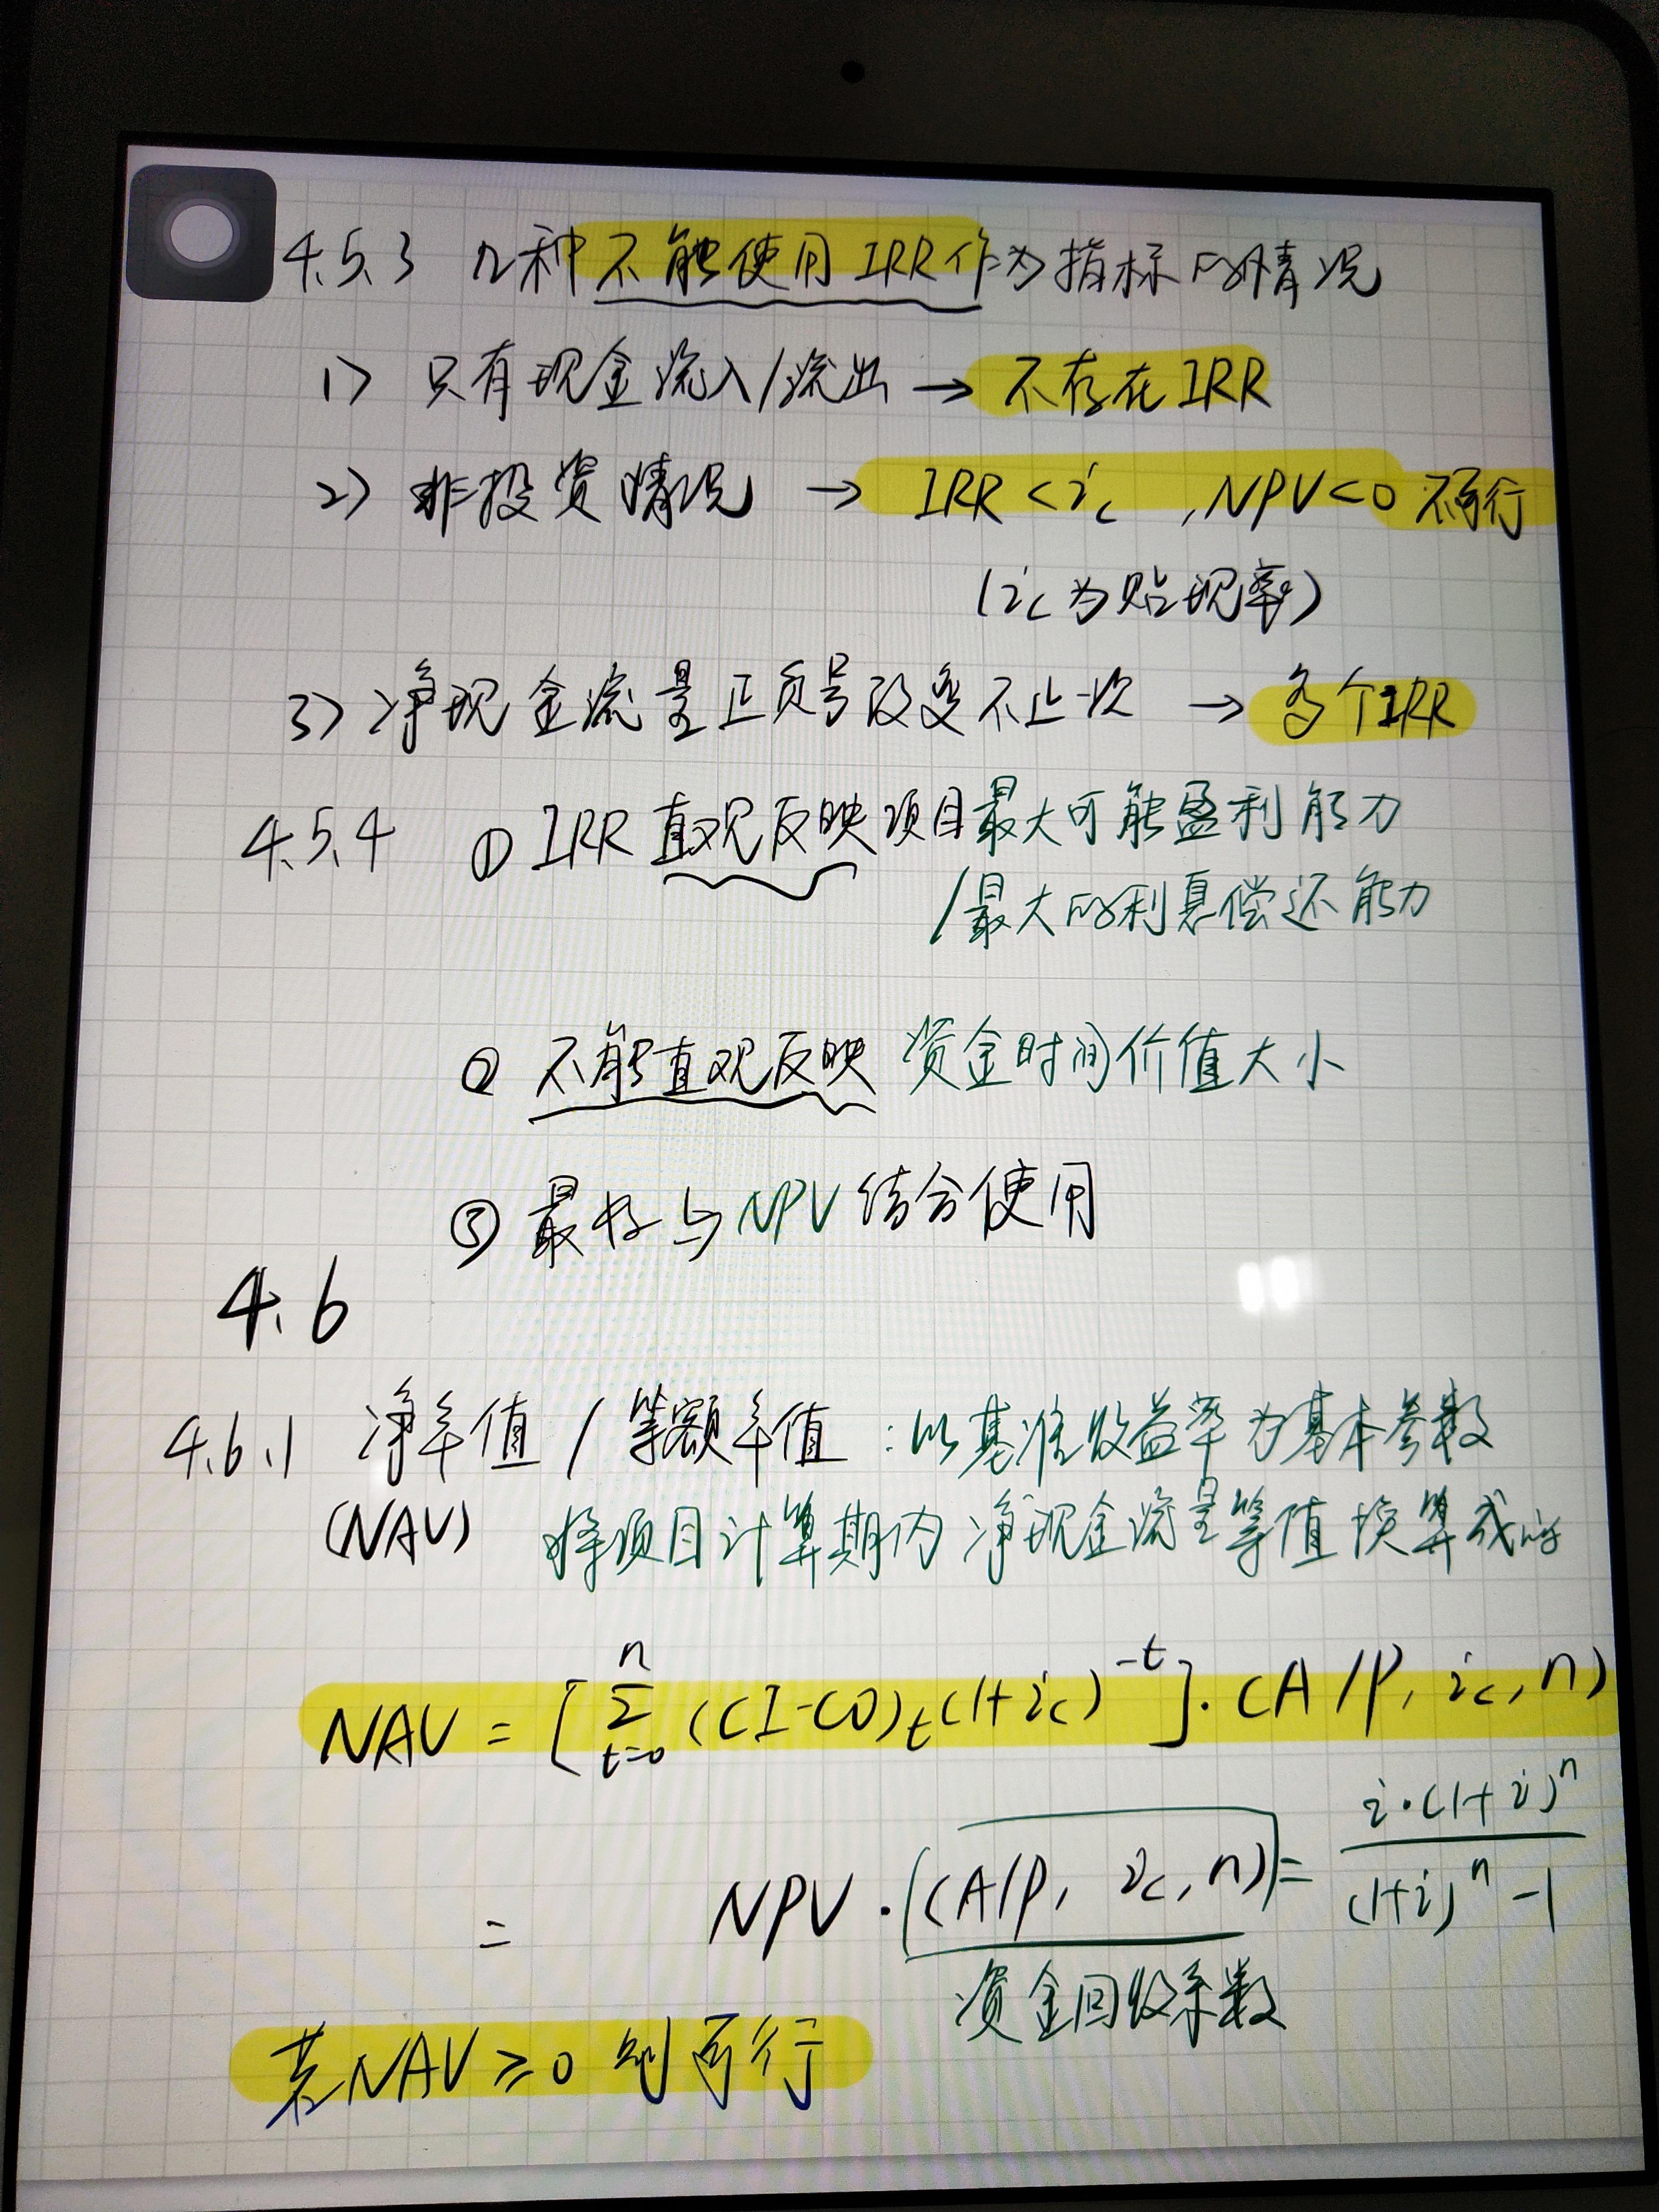 4.5.3 几种不能使用IRR作为指标的情况
1) 只有现金流入/流出 → 不存在IRR
2) 非投资情况 → IRR < ic , NPV<0 不可行
(ic为贴现率)
3) 净现金流量正负号改变不止一次 → 多个IRR
4.5.4 ① IRR 直观反映项目最大可能盈利能力
/最大的利息偿还能力
② 不能直观反映 资金时间价值大小
③ 最好与NPV结合使用
4.6
4.6.1 净年值 / 等额年值 : 以基准收益率为基本参数
(NAV) 将项目计算期内 净现金流量等值换算成的
NAV = [ Σ_{t=0}^{n} (CI-CO)_t (1+ic)^{-t} ] · (A/P, ic, n)
= NPV · (A/P, ic, n) = i·(1+i)^n / (1+i)^n - 1
资金回收系数
若NAV ≥ 0 则可行